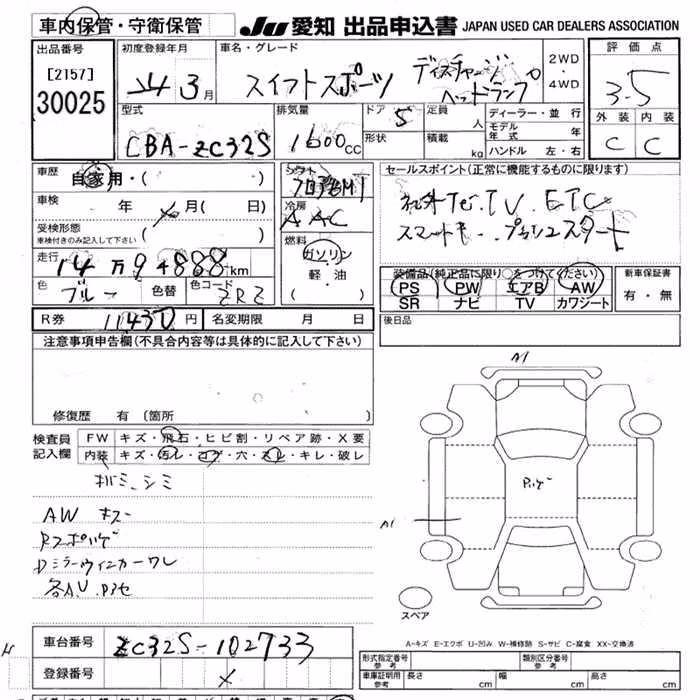 車内保管・守衛保管
JU 愛知 出品申込書 JAPAN USED CAR DEALERS ASSOCIATION
出品番号
[2157]
30025
初度登録年月
24 3月
車名・グレード
スイフトスポーツ ディスチャージ
ヘッドランプ
2WD
・
4WD
評価点
3.5
外装 内装
C C
型式
CBA-ZC32S
排気量
1600cc
ドア 5
形状
定員 人
積載 kg
ディーラー・並行
モデル年式 年
ハンドル 左・右
車歴
自家用・( )
車検
年 月( 日)
受検形態
車検付きのみ記入して下さい ( )
走行
14万9888km
色
ブルー
色替
色コード
ZRZ
シフト
フロア6MT
冷房
AAC
燃料
ガソリン
軽・油
( )
セールスポイント(正常に機能するものに限ります)
社外TV. ETC
スマートキー. プッシュスタート
装備品(純正品に限り○をつけてください)
PS PW エアB AW
SR ナビ TV カワシート
新車保証書
有・無
R券 11430円 名変期限 月 日
後日品
注意事項申告欄(不具合内容等は具体的に記入して下さい)
修復歴 有(箇所 )
検査員
記入欄
FW キズ・飛石・ヒビ割・リペア跡・X要
内装 キズ・汚レ・コゲ・穴・スレ・キレ・破レ
キバミ、シミ
AW キズ
Dミラーウィンカーワレ
各A.U
A1
A1
スペア
A-キズ E-エクボ U-凹み W-補修跡 S-サビ C-腐食 XX-交換済
車台番号 ZC32S-102733
登録番号
形式指定番号
参考
類別区分番号
参考
車庫証明用
参考
長さ cm 幅 cm 高さ cm